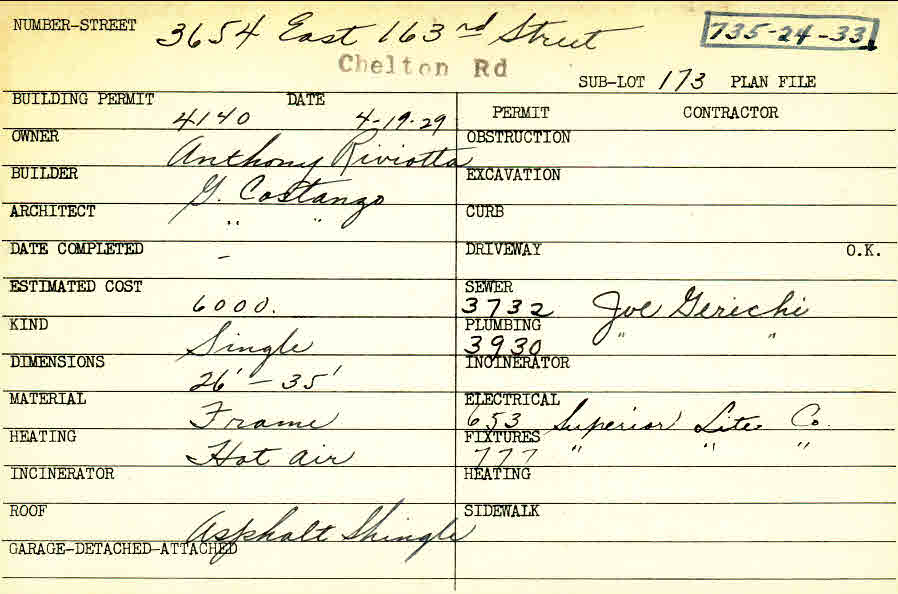 NUMBER-STREET 3654 East 163rd Street 735-24-33
Chelton Rd
SUB-LOT 173 PLAN FILE
BUILDING PERMIT 4140 DATE 4-19-29
PERMIT CONTRACTOR
OWNER Anthony Riviotta
OBSTRUCTION
BUILDER G. Costango
EXCAVATION
ARCHITECT " "
CURB
DATE COMPLETED -
DRIVEWAY O.K.
ESTIMATED COST 6000.
SEWER 3732 Joe Gerichi
KIND Single
PLUMBING 3930 " "
DIMENSIONS 26' - 35'
INCINERATOR
MATERIAL Frame
ELECTRICAL 653 Superior Lite Co.
HEATING Hot air
FIXTURES 777 " " "
INCINERATOR
HEATING
ROOF Asphalt Shingle
SIDEWALK
GARAGE-DETACHED-ATTACHED